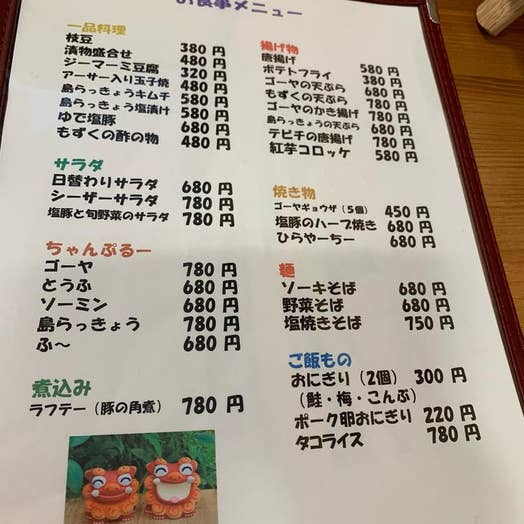 お食事メニュー
一品料理
枝豆 380 円
漬物盛合せ 480 円
ジーマーミ豆腐 320 円
アーサー入り玉子焼 480 円
島らっきょうキムチ 580 円
島らっきょう塩漬け 580 円
ゆで塩豚 680 円
もずくの酢の物 480 円
サラダ
日替わりサラダ 680 円
シーザーサラダ 780 円
塩豚と旬野菜のサラダ 780 円
ちゃんぷるー
ゴーヤ 780 円
とうふ 680 円
ソーミン 680 円
島らっきょう 780 円
ふ～ 680 円
煮込み
ラフテー（豚の角煮） 780 円
揚げ物
唐揚げ 580 円
ポテトフライ 380 円
ゴーヤの天ぷら 580 円
もずくの天ぷら 680 円
ゴーヤのかき揚げ 780 円
島らっきょうの天ぷら 680 円
テビチの唐揚げ 780 円
紅芋コロッケ 580 円
焼き物
ゴーヤギョウザ（5個） 450 円
塩豚のハーブ焼き 680 円
ひらやーちー 680 円
麺
ソーキそば 680 円
野菜そば 680 円
塩焼きそば 750 円
ご飯もの
おにぎり（2個） 300 円
（鮭・梅・こんぶ）
ポーク卵おにぎり 220 円
タコライス 780 円